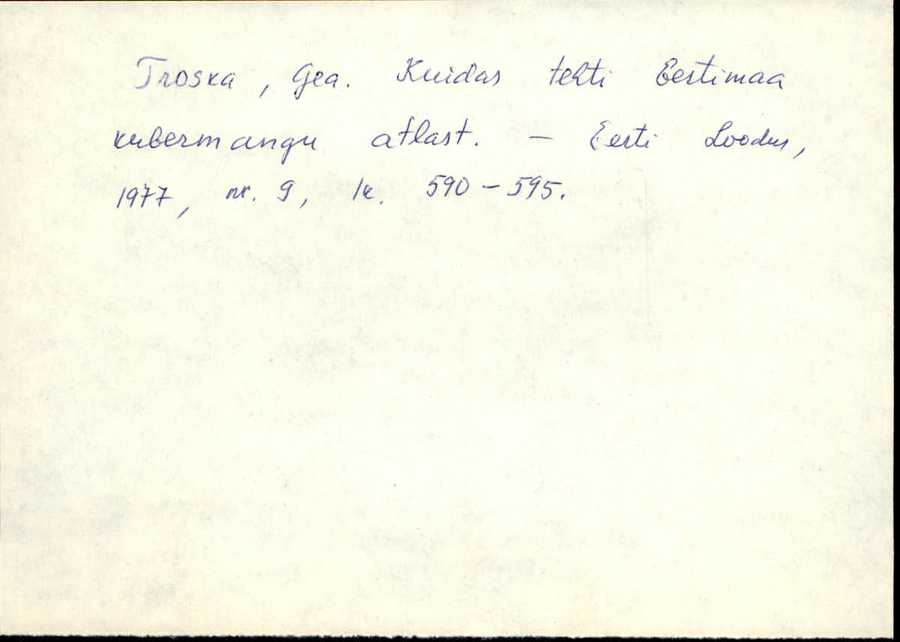 Troska, Gea. Kuidas tehti Eestimaa
kubermangu atlast. – Eesti Loodus,
1977, nr. 9, lk. 590–595.